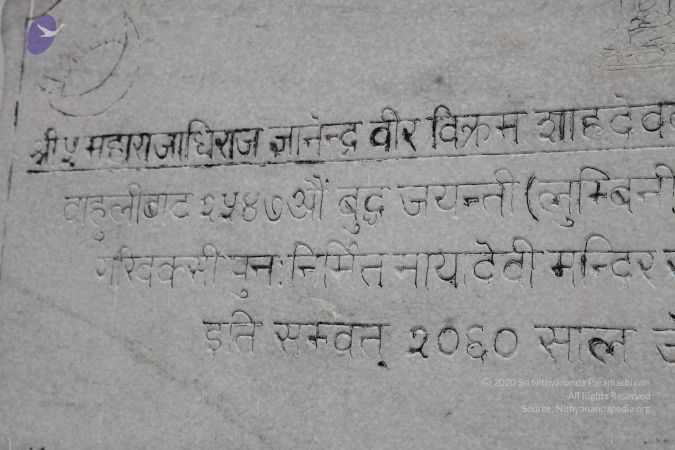 श्री ५ महाराजाधिराज ज्ञानेन्द्र वीर विक्रम शाहदेव
वाहुलीबाट २५४७औं बुद्ध जयन्ती (लुम्बिनी
गरिवक्सी पुनः निर्मित मायादेवी मन्दिर
इति सम्वत् २०६० साल
© 2020 Sri Nithyananda Paramashivam
All Rights Reserved
Source: Nithyanandapedia.org